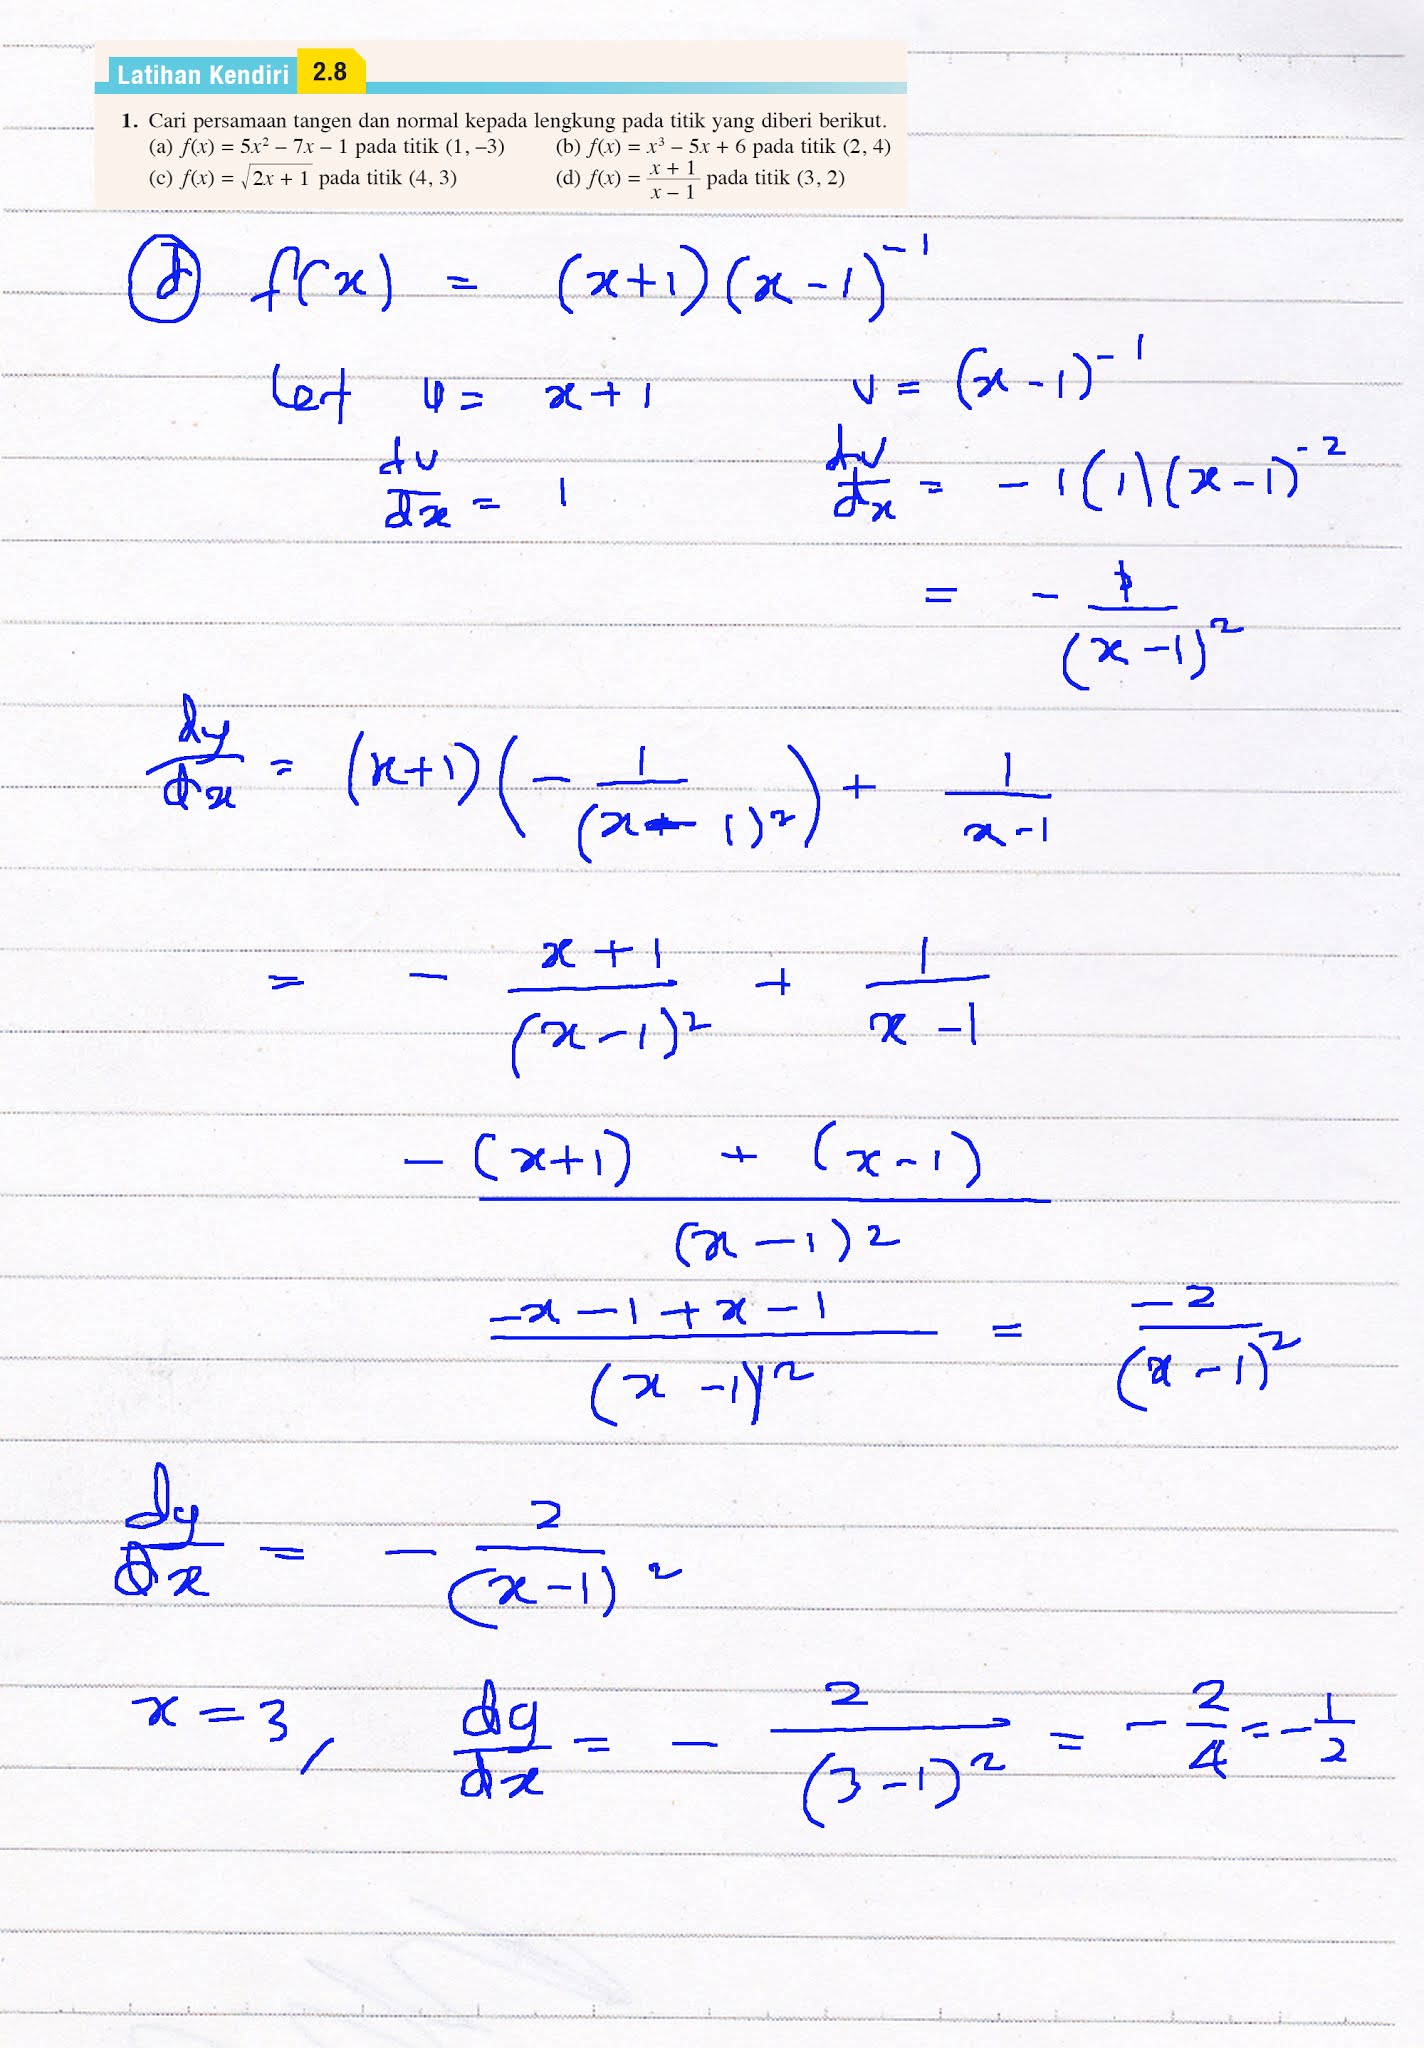 Latihan Kendiri 2.8
1. Cari persamaan tangen dan normal kepada lengkung pada titik yang diberi berikut.
(a) f(x) = 5x² – 7x – 1 pada titik (1, –3) (b) f(x) = x³ – 5x + 6 pada titik (2, 4)
(c) f(x) = √(2x + 1) pada titik (4, 3) (d) f(x) = (x + 1)/(x – 1) pada titik (3, 2)
(d) f(x) = (x+1)(x-1)⁻¹
Let u = x+1 v = (x-1)⁻¹
du/dx = 1 dv/dx = -1(1)(x-1)⁻²
= - 1/(x-1)²
dy/dx = (x+1)(- 1/(x-1)²) + 1/(x-1)
= - (x+1)/(x-1)² + 1/(x-1)
(-(x+1) + (x-1))/(x-1)²
(-x-1+x-1)/(x-1)² = -2/(x-1)²
dy/dx = - 2/(x-1)²
x=3, dy/dx = - 2/(3-1)² = - 2/4 = - 1/2